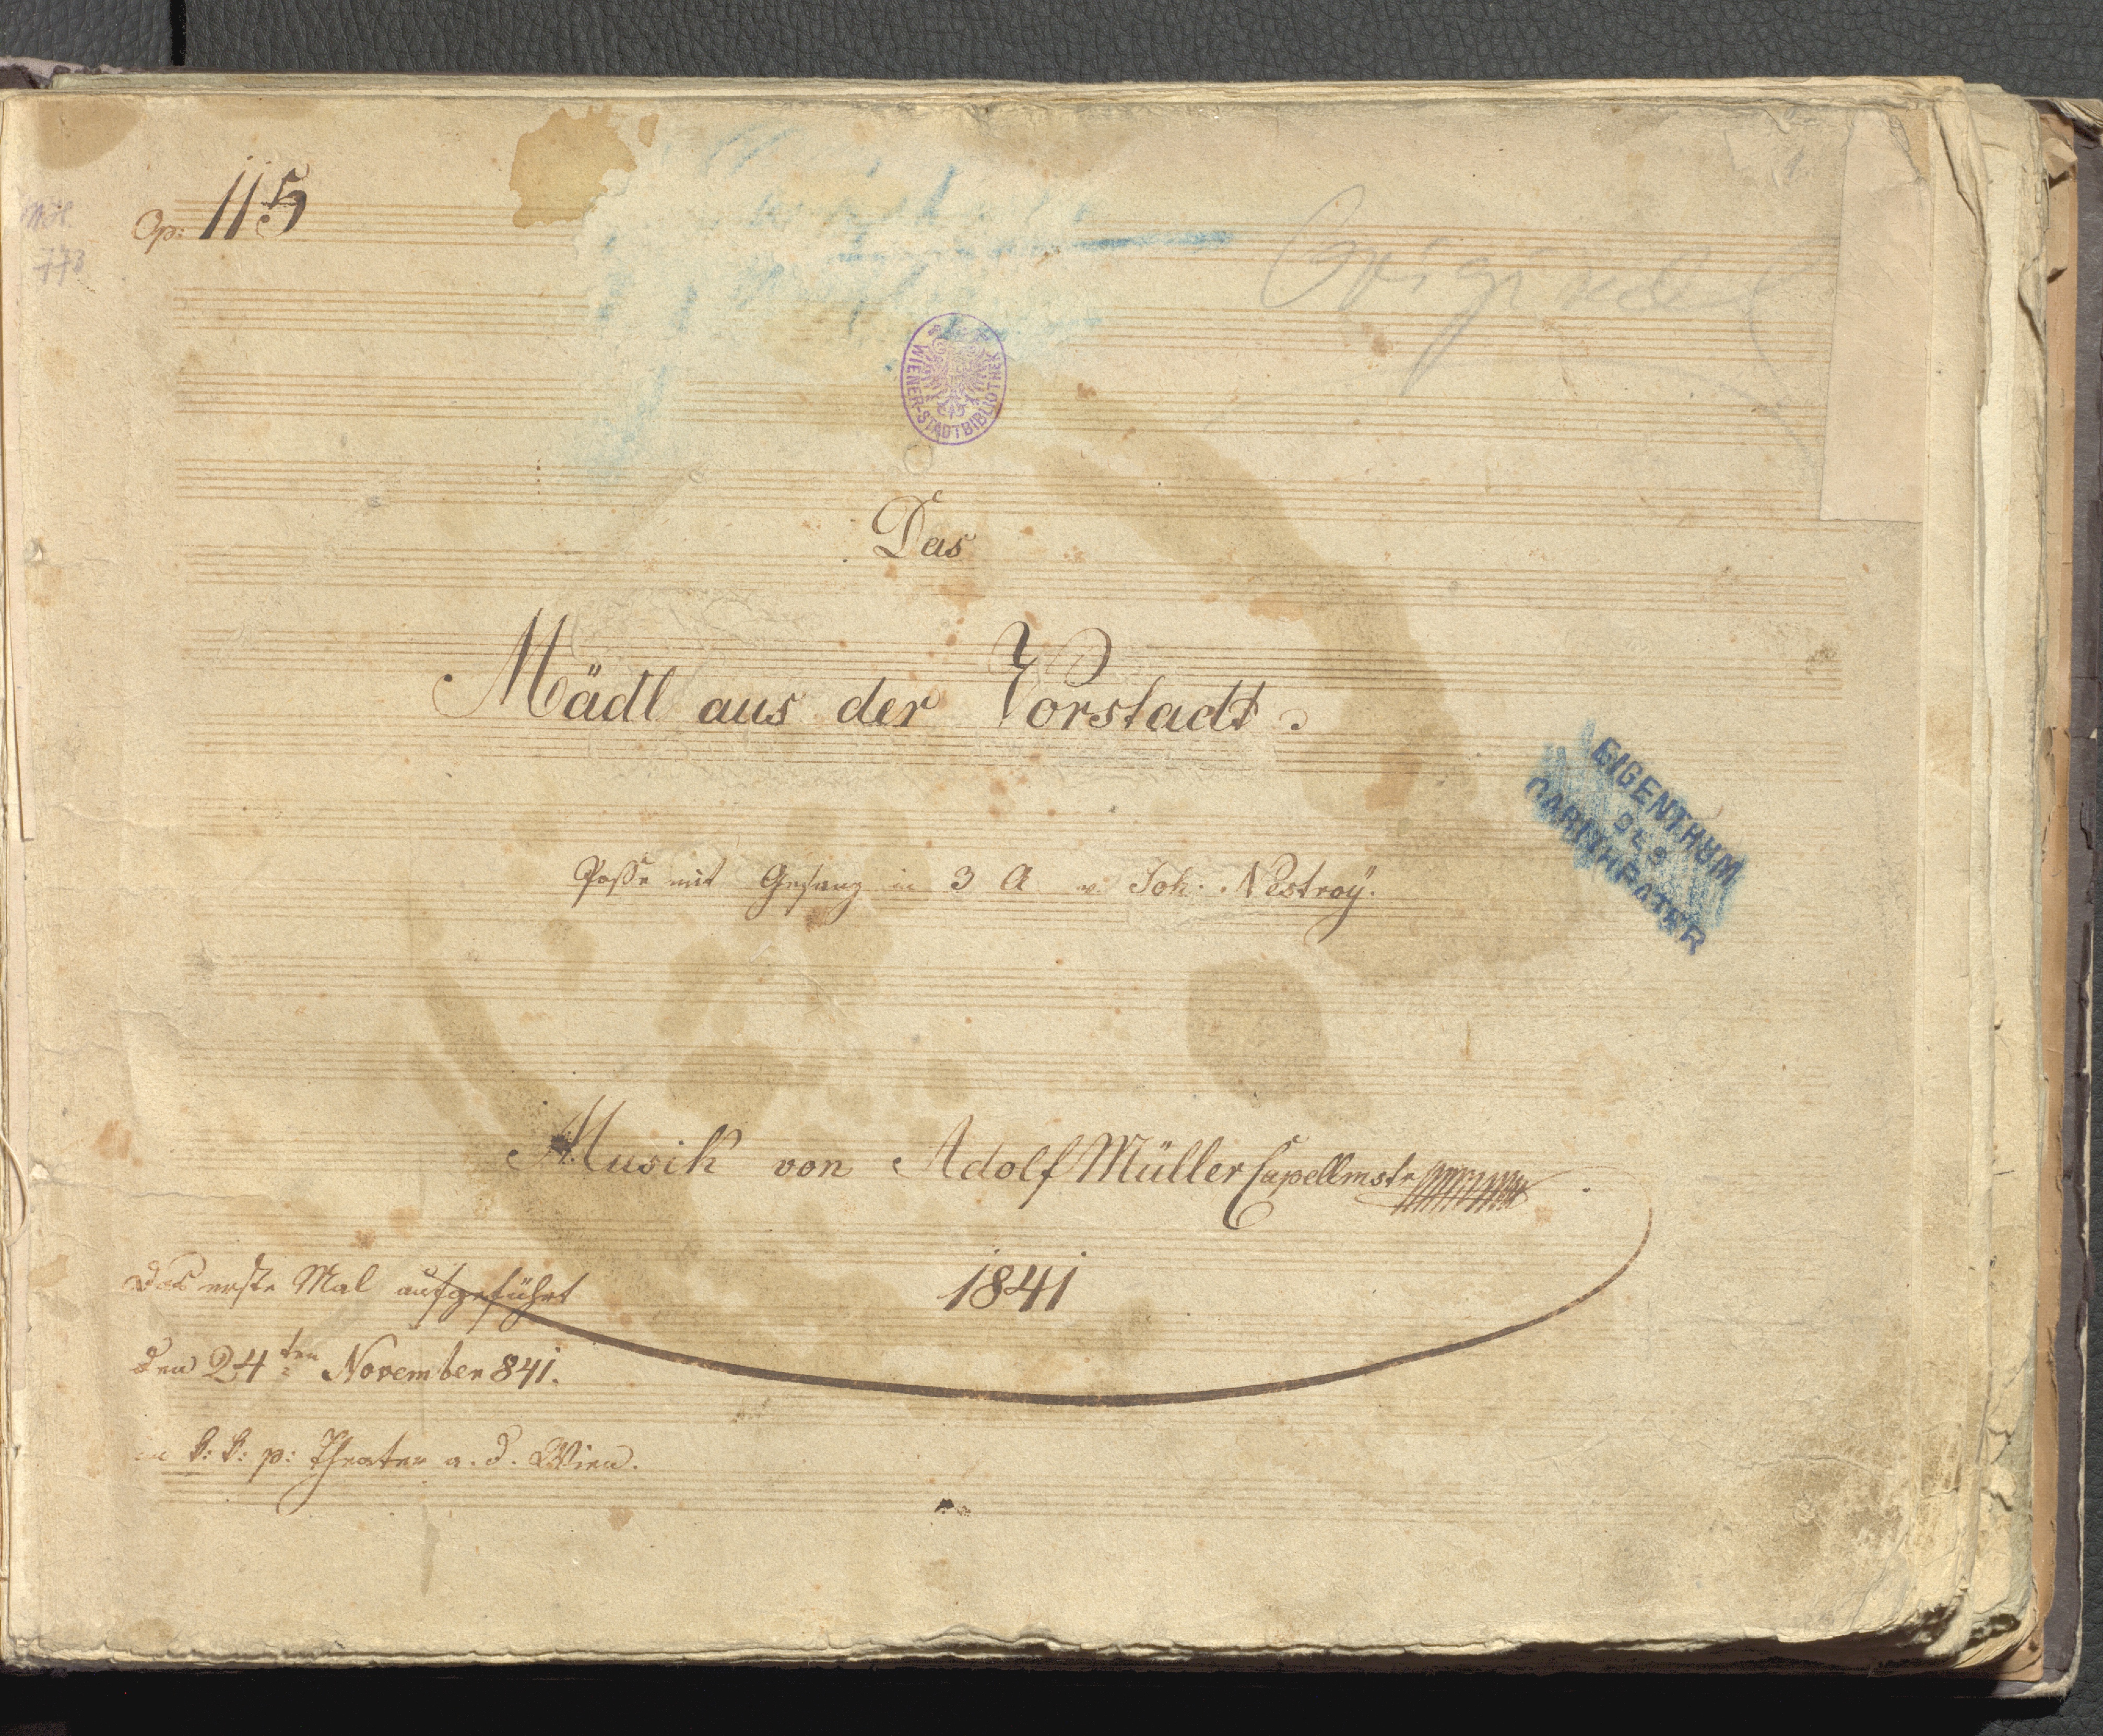 Op: 115
MH.
773
Original
WIENER-STADTBIBLIOTHEK
Das
Mädl aus der Vorstadt.
EIGENTHUM
949
CARLTHEATER
Posse mit Gesang in 3 A v Joh. Nestroy.
Musik von Adolf Müller Capellmstr
1841
Das erste Mal aufgeführt
den 24ten November 841.
in k: k: p: Theater a. d. Wien.